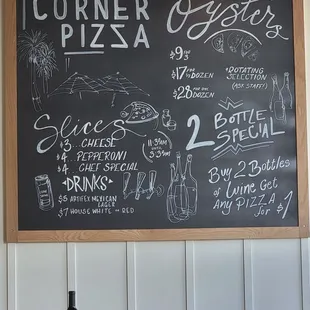 CORNER
PIZZA
Oysters
$9/3
$17/½ DOZEN
$28/DOZEN
•ROTATING
SELECTION
(ASK STAFF!)
Slices
$3...CHEESE
$4...PEPPERONI
$4 CHEF SPECIAL
11:30AM
3:30PM
•DRINKS•
$5 ARTIFEX MEXICAN
LAGER
$7 HOUSE WHITE OR RED
2 BOTTLE
SPECIAL
BUY 2 BOTTLES
OF WINE GET
ANY PIZZA
for $1